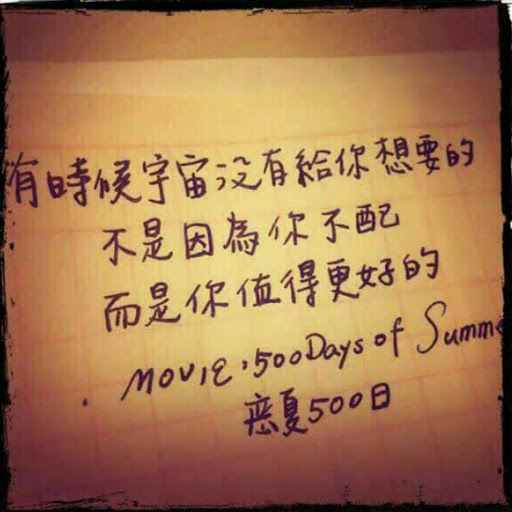 有時候宇宙沒有給你想要的
不是因為你不配
而是你值得更好的
MOVIE:500 Days of Summe
戀夏500日